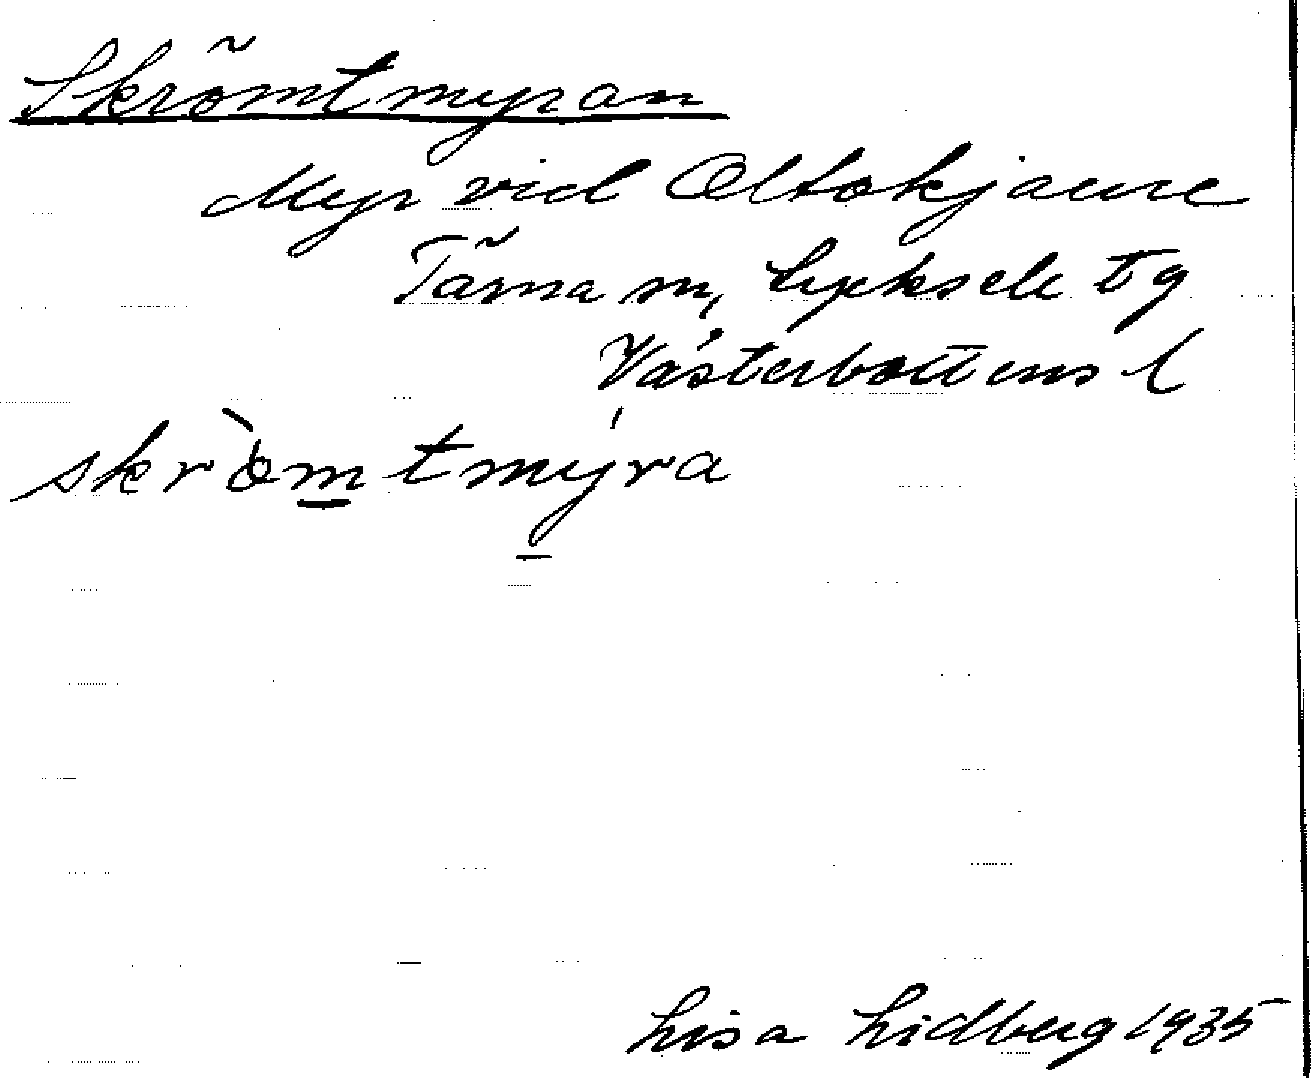 Skrömtmyran
Myr vid Oltokjaure
Tärna sn, Lycksele tg
Västerbottens l
skròmtmýra
Lisa Lidberg 1935